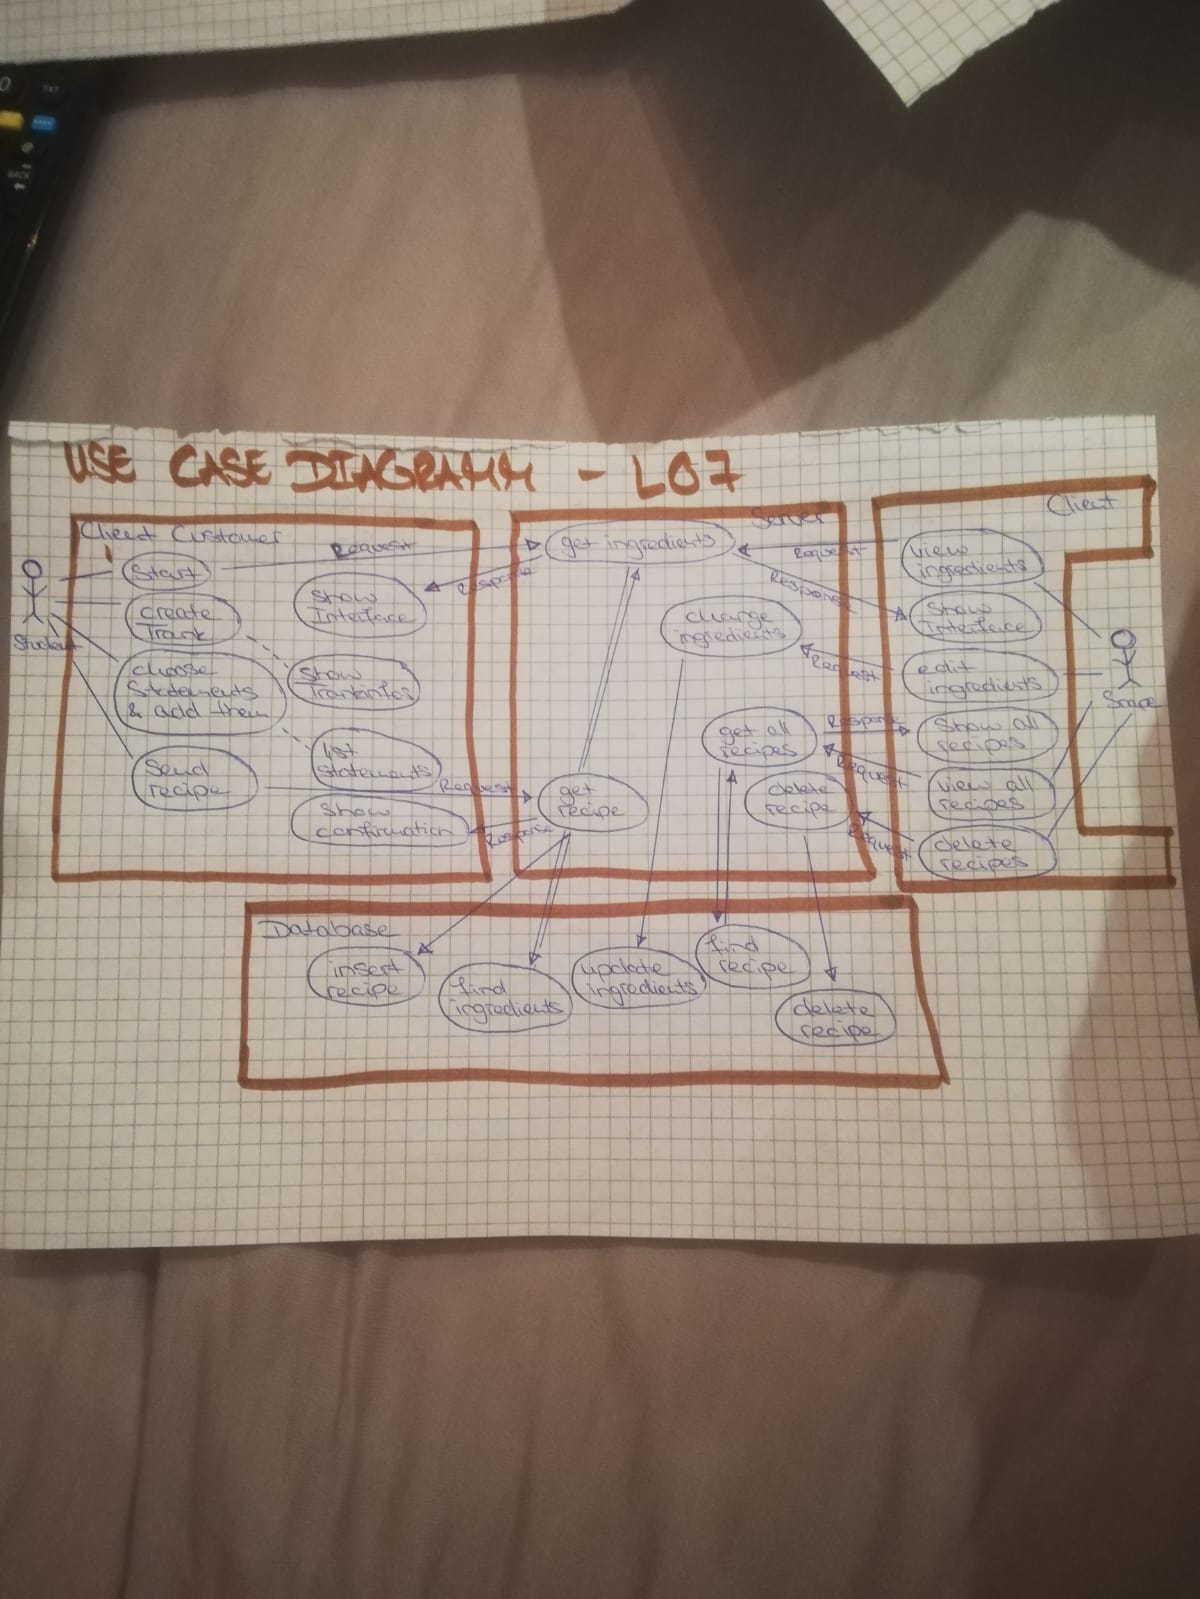 TXT
BACK
USE CASE DIAGRAMM - L07
Client Customer
Start
create
Trank
choose
Statements
& add them
Send
recipe
Student
Show
Interface
Show
Trankinfos
list
statements
Show
confirmation
Request
Response
Request
Response
Server
get ingredients
change
ingredients
get all
recipes
delete
recipe
get
recipe
Request
Response
Request
Response
Request
Request
Client
view
ingredients
Show
Interface
edit
ingredients
Show all
recipes
view all
recipes
delete
recipes
Snape
Database
insert
recipe
find
ingredients
update
ingredients
find
recipe
delete
recipe